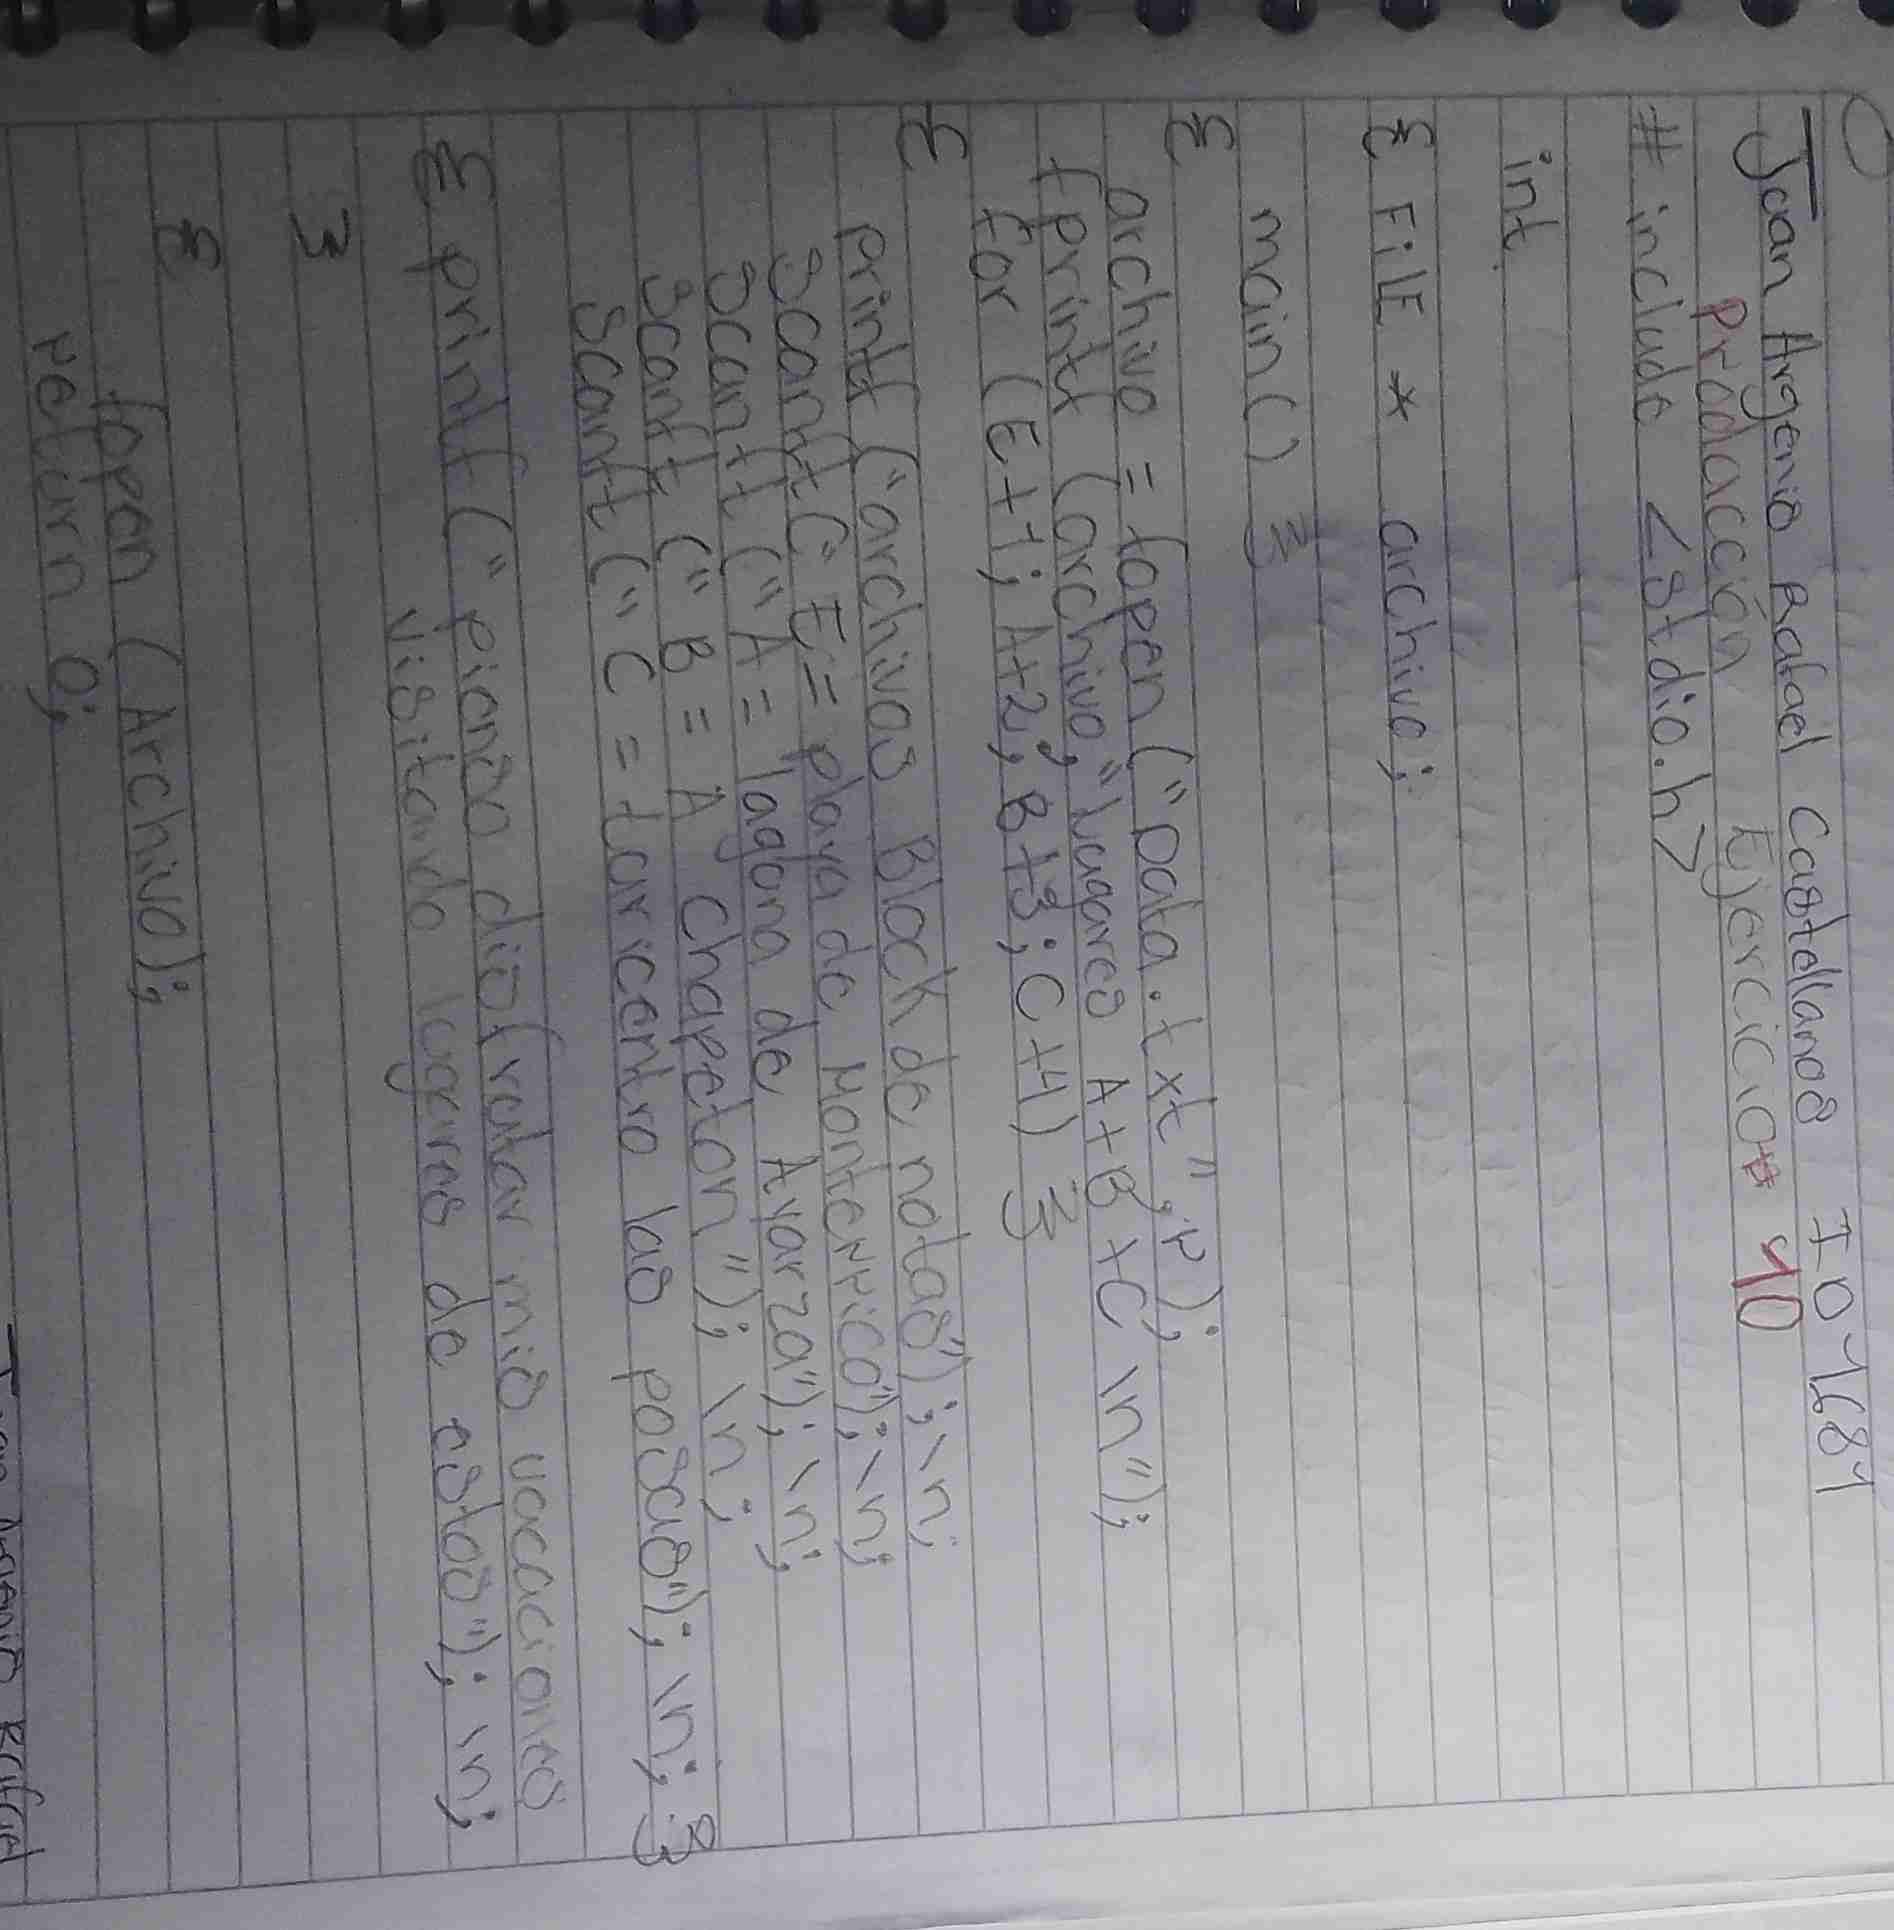 Joan Argenis Rafael Castellanos 101681
Producción Ejercicio # 10
# include <stdio.h>
int
{ FILE * archivo;
main() }
{
archivo = fopen ("Data.txt", r);
fprintf (archivo, "Lugares A+B+C \n");
for (E+1; A+2; B+3; C+4) }
{
printf ("archivos Block de notas"); \n;
Scanf (" E = playa de Monterrico"); \n;
Scanf (" A = lagona de Ayarza"); \n;
Scanf (" B = A chapeton"); \n;
Scanf (" C = tarricentro las posas"); \n; }
{ printf (" pienso disfrutar mis vacaciones
visitando lugares de estos"); \n;
}
{
fopen (Archivo);
return 0;